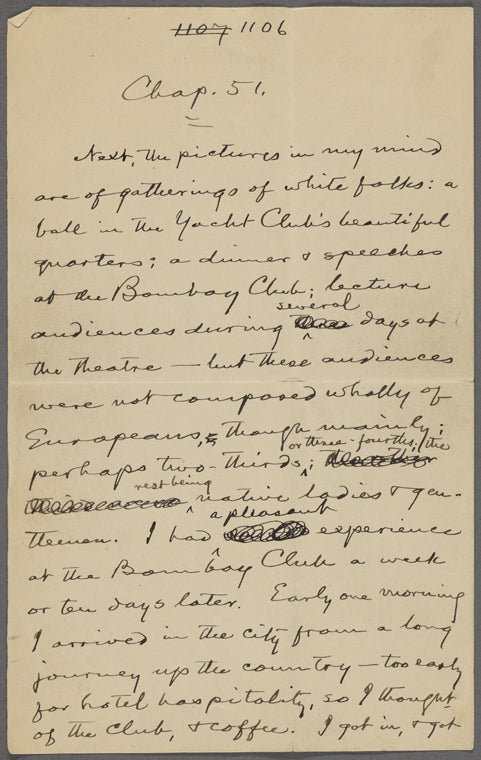 1107 1106
Chap. 51.
Next, the pictures in my mind
are of gatherings of white folks: a
ball in the Yacht Club's beautiful
quarters; a dinner & speeches
at the Bombay Club; lecture
several
audiences during days at
the theatre — but these audiences
were not composed wholly of
Europeans, though mainly;
or three-fourths; the
perhaps two-thirds;
rest being
native ladies & gen-
a pleasant
tlemen. I had experience
at the Bombay Club a week
or ten days later. Early one morning
I arrived in the city from a long
journey up the country — too early
for hotel hospitality, so I thought
of the Club, & coffee. I got in, & got